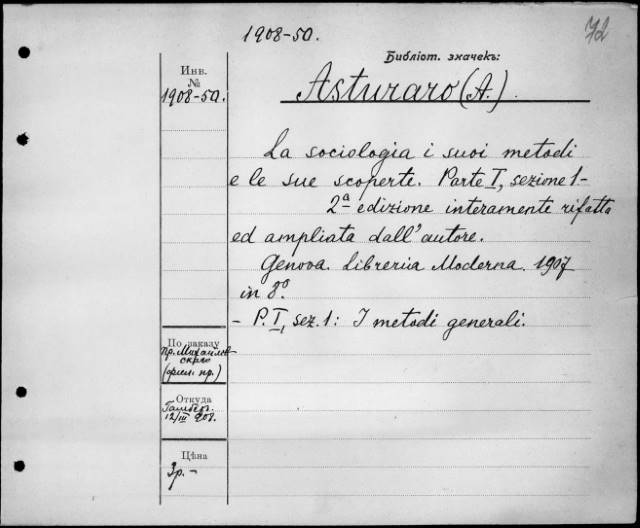 1908-50.
72
Библіот. значекъ:
Инв.
№
1908-50.
Asturaro (A.).
La sociologia i suoi metodi
e le sue scoperte. Parte I, sezione 1.-
2ª edizione interamente rifatta
ed ampliata dall'autore.
Genova. Libreria Moderna. 1907
in 8º.
- P. I, sez. 1: I metodi generali.
По заказу
пр. Михайлов-
скаго
Откуда
12/III 908.
Цѣна
3р. -